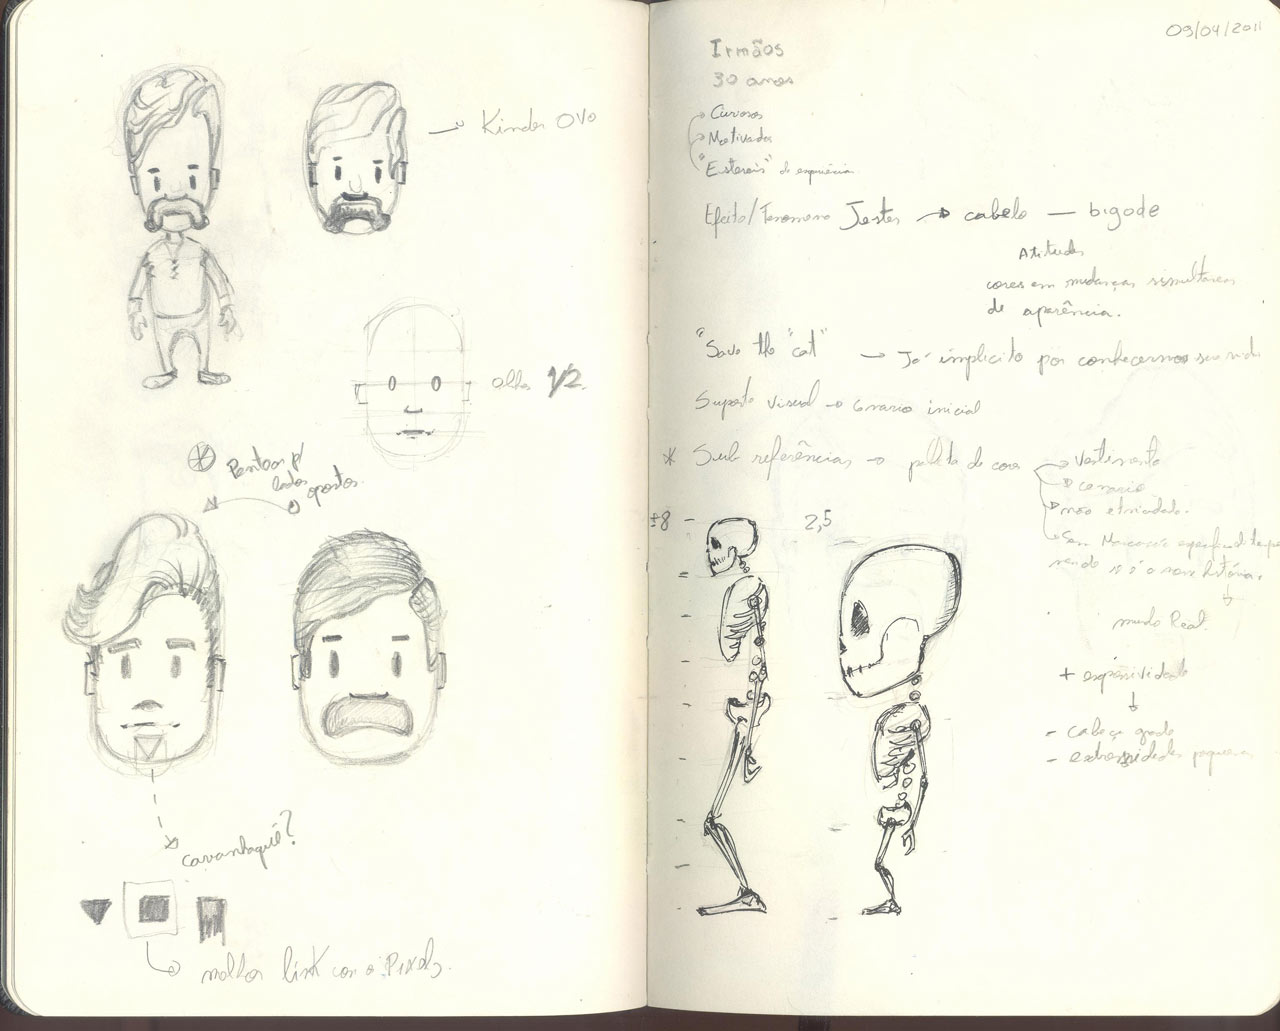 Kinder OVO
olhos 1/2
Pentear p/
lados
opostos.
cavanhaque?
melhor link com o Pixels.
09/04/2011
Irmãos
30 anos
Curiosos
Motivados
"Estereis" de experiência
Efeito/Fenomeno Jestes → cabelo — bigode
Atitudes
cores em mudanças simultaneas
de aparência.
"Save the "cat" → Já implicito por conhecermos
Suporte Visual → Cenario inicial
* Sub referências → de cores
Vestimenta
cenario
não
Sem
mundo Real.
+ expressividade
- cabeça grande
- extremidades pequenas
±8
2,5